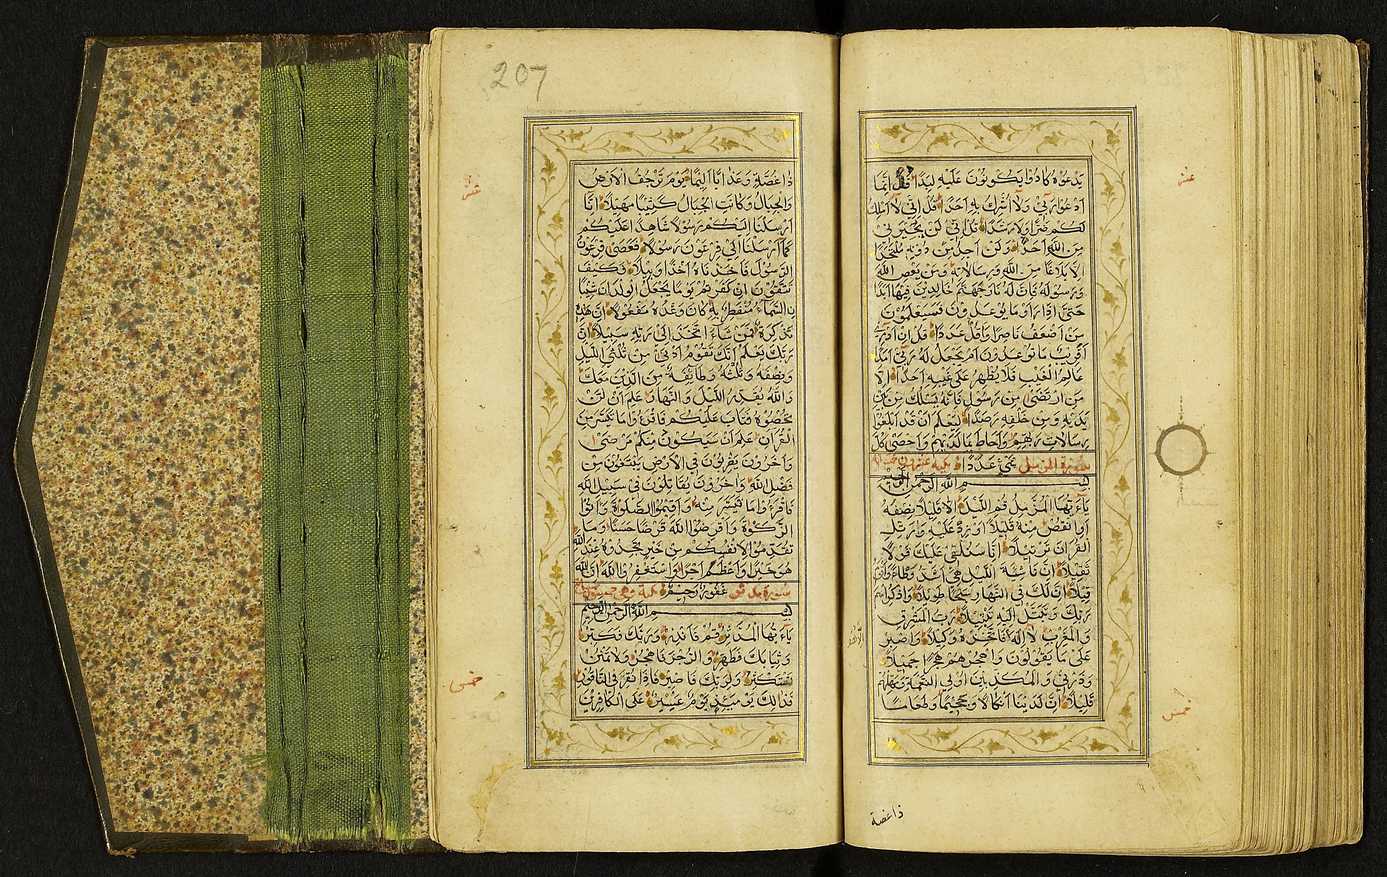 يدعوه كادوا يكونون عليه لبدا قل انما
ادعوا ربي ولا اشرك به احدا قل اني لا املك
لكم ضرا ولا رشدا قل اني لن يجيرني
من الله احد ولن اجد من دونه ملتحدا
الا بلاغا من الله ورسالاته ومن يعص الله
ورسوله فان له نار جهنم خالدين فيها ابدا
حتى اذا راوا ما يوعدون فسيعلمون
من اضعف ناصرا واقل عددا قل ان ادري
اقريب ما توعدون ام يجعل له ربي امدا
عالم الغيب فلا يظهر على غيبه احدا الا
من ارتضى من رسول فانه يسلك من بين
يديه ومن خلفه رصدا ليعلم ان قد ابلغوا
رسالات ربهم واحاط بما لديهم واحصى كل
سورة المزمل شئ عددا
بسم الله الرحمن الرحيم
يا ايها المزمل قم الليل الا قليلا نصفه
او انقص منه قليلا او زد عليه ورتل
القران ترتيلا انا سنلقي عليك قولا
ثقيلا ان ناشئة الليل هي اشد وطاء واقوم
قيلا ان لك في النهار سبحا طويلا واذكر اسم
ربك وتبتل اليه تبتيلا رب المشرق
والمغرب لا اله الا هو فاتخذه وكيلا واصبر
على ما يقولون واهجرهم هجرا جميلا
وذرني والمكذبين اولي النعمة ومهلهم
قليلا ان لدينا انكالا وجحيما وطعاما
عشر
خمس
ذا غصة
207
ذا غصة وعذابا اليما يوم ترجف الارض
والجبال وكانت الجبال كثيبا مهيلا انا
ارسلنا اليكم رسولا شاهدا عليكم
كما ارسلنا الى فرعون رسولا فعصى فرعون
الرسول فاخذناه اخذا وبيلا فكيف
تتقون ان كفرتم يوما يجعل الولدان شيبا
السماء منفطر به كان وعده مفعولا ان هذه
تذكرة فمن شاء اتخذ الى ربه سبيلا ان
ربك يعلم انك تقوم ادنى من ثلثي الليل
ونصفه وثلثه وطائفة من الذين معك
والله يقدر الليل والنهار علم ان لن
تحصوه فتاب عليكم فاقرؤا ما تيسر من
القران علم ان سيكون منكم مرضى
واخرون يضربون في الارض يبتغون من
فضل الله واخرون يقاتلون في سبيل الله
فاقرؤا ما تيسر منه واقيموا الصلوة واتوا
الزكوة واقرضوا الله قرضا حسنا وما
تقدموا لانفسكم من خير تجدوه عند الله
هو خيرا واعظم اجرا واستغفروا الله ان الله
سورة مدثر غفور رحيم
بسم الله الرحمن الرحيم
يا ايها المدثر قم فانذر وربك فكبر
وثيابك فطهر والرجز فاهجر ولا تمنن
تستكثر ولربك فاصبر فاذا نقر في الناقور
فذلك يومئذ يوم عسير على الكافرين
عشر
خمس